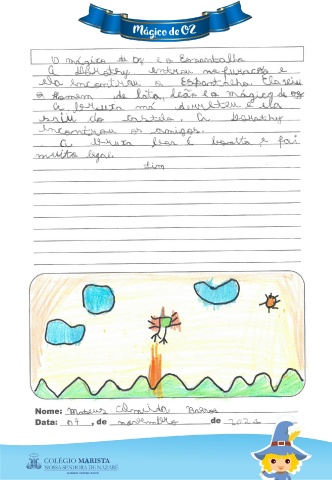 Mágico de OZ
O mágico de oz e o Espantalho
A Dorothy entrou no furacão e
ela encontrou o Espantalho. Ela viu
o Homem de lata, leão e o mágico de oz
A bruxa má derreteu e ela
saiu do castelo. A Dorothy
encontrou os amigos.
A bruxa boa é bonita e foi
muito legal.
Fim
Nome: Mateus Almeida Barros
Data: 04, de novembro de 2021
COLÉGIO MARISTA
NOSSA SENHORA DE NAZARÉ